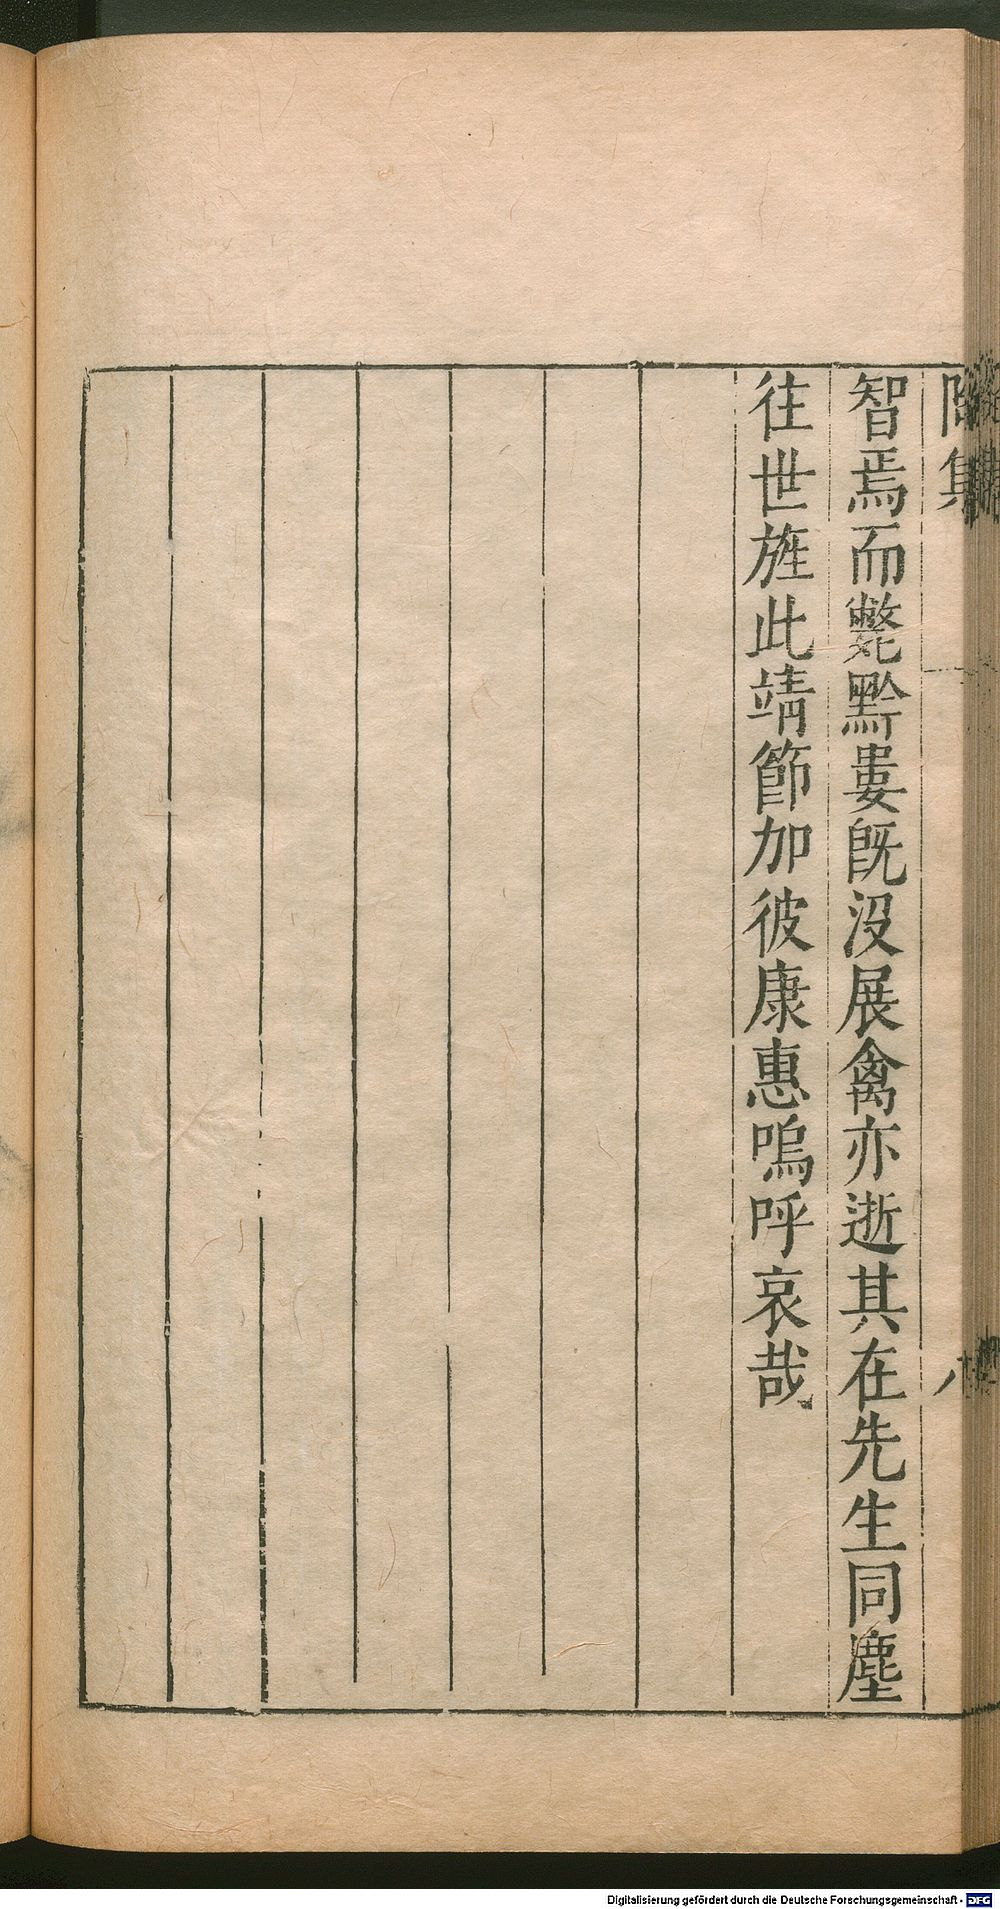 集
智焉而斃黔婁旣没展禽亦逝其在先生同塵
往世旌此靖節加彼康惠嗚呼哀哉
Digitalisierung gefördert durch die Deutsche Forschungsgemeinschaft - DFG